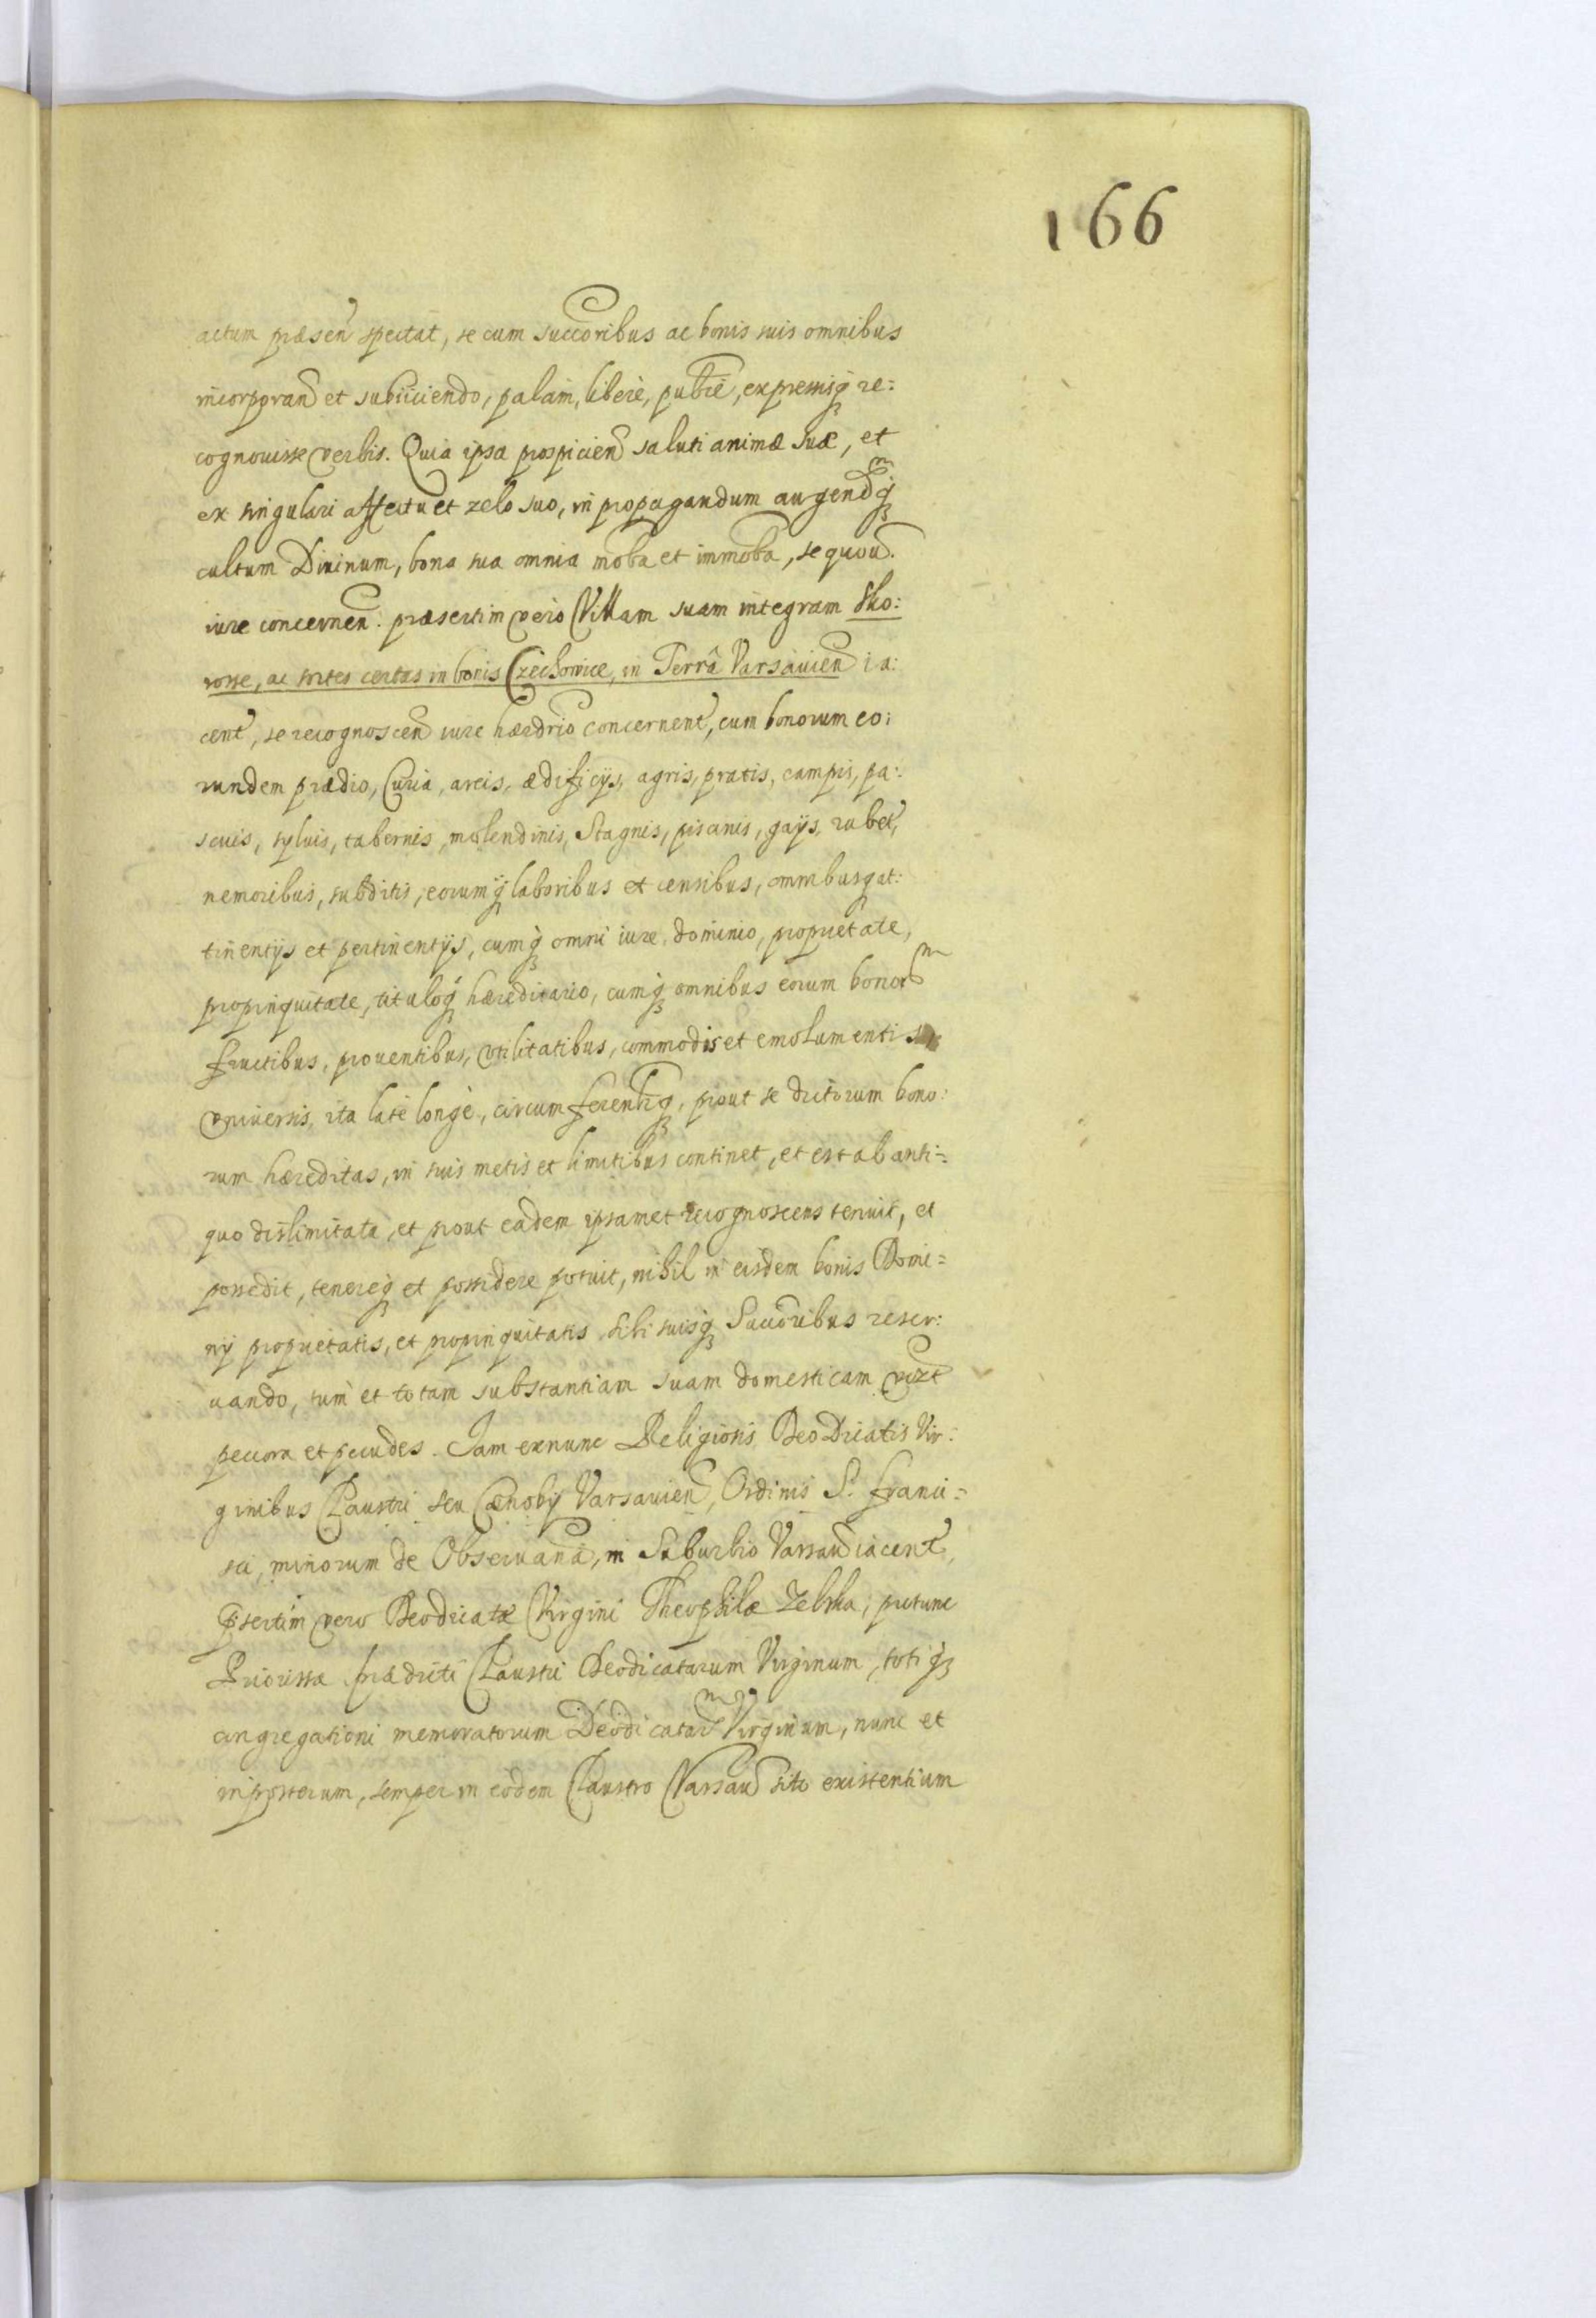 166
actum præsen spectat, se cum succoribus ac bonis suis omnibus
incorporand et subiiciendo, palam, liberè, publiè, expressisq re:
cognouisse verbis. Quia ipsa prospiciend saluti animæ suæ, et
ex singulari affectu et zelo suo, in propagandum augendmq
cultum Diuinum, bona sua omnia moba et immoba, se quou.
iure concernen: præsertim vero Villam suam integram Sko:
rosse, ac sortes certas in bonis Czechowice, in Terrâ Varsauien ia:
cent, se recognoscen iure hærdrio concernent, cum bonorum eo:
rundem prædio, Curia, areis, ædificijs, agris, pratis, campis, pa:
scuis, syluis, tabernis, molendinis, Stagnis, piscinis, gays, rubet,
nemoribus, subditis, eorumq laboribus et censibus, omnibusq at:
tinentijs et pertinentijs, cumq omni iure, dominio, proprietate,
propinquitate, tituloq hæreditario, cumq omnibus eorum bonorm
fructibus, prouentibus, vtilitatibus, commodis et emolumentis
vniuersis, ita latè longè, circumferentiq, prout se dictorum bono:
rum hæreditas, in suis metis et limitibus continet, et est ab anti=
quo dislimitata, et prout eadem ipsamet recognoscens tenuit, et
possedit, tenereq et possidere potuit, nihil in eisdem bonis Domi=
nij proprietatis, et propinquitatis sibi suisq Succoribus reser:
uando, tum et totam substantiam suam domesticam vizt
peccora et pecudes. Iam exnunc Religiosis Deo Dicatis Vir:
ginibus Claustri seu Cænobij Varsauien, Ordinis S. Franci=
sci, minorum de Obseruana, in Suburbio Varsau iacent,
Psertim vero Deodicatæ Virgini Theophilæ Zelska, protunc
Priorissa prædicti Claustri Deodicatarum Virginum, totiq
congregationi memoratorum Deodicatarm Virginum, nunc et
inposterum, semper in eodem Claustro Varsau sito existentium